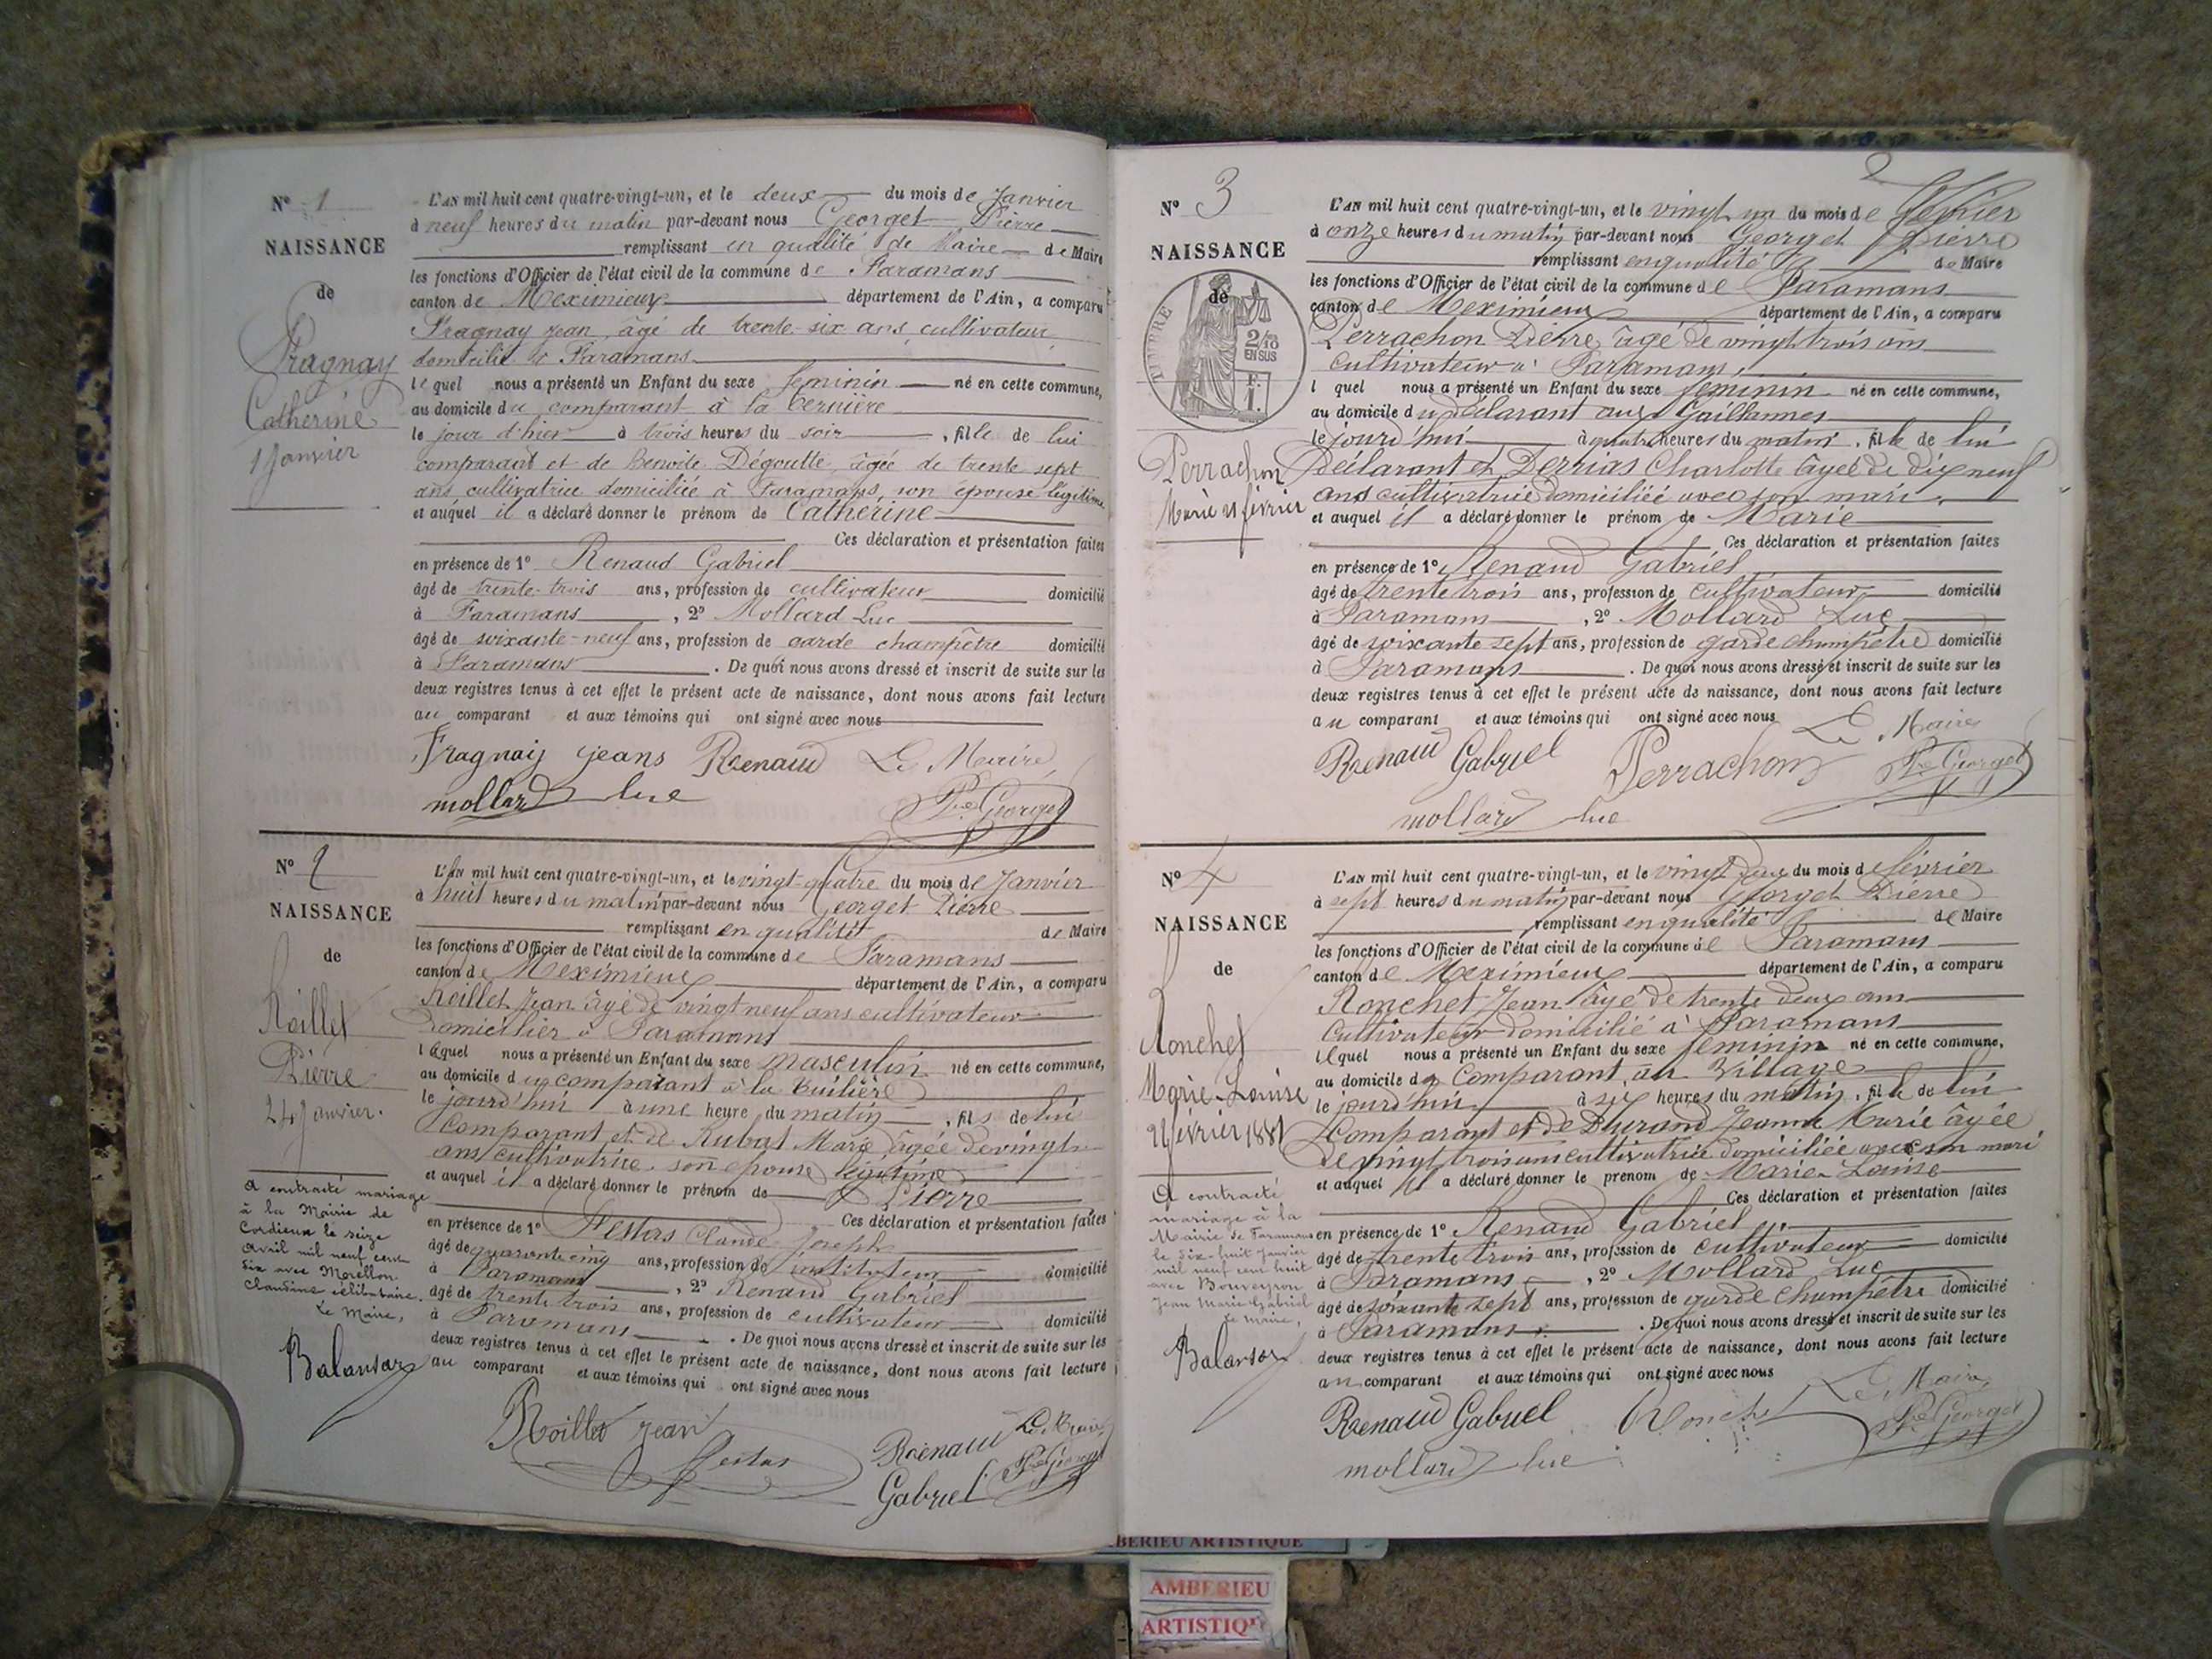 N° 1
NAISSANCE
de
Fragnay
Catherine
1 Janvier
L'AN mil huit cent quatre-vingt-un, et le deux du mois de Janvier
à neuf heures du matin par-devant nous Georget Pierre
remplissant en qualité de Maire de Maire
les fonctions d'Officier de l'état civil de la commune de Faramans
canton de Meximieux département de l'Ain, a comparu
Fragnay Jean, âgé de trente-six ans, cultivateur
domicilié à Faramans
lequel nous a présenté un Enfant du sexe féminin né en cette commune,
au domicile du comparant à la
le jour d'hier à trois heures du soir, fille de lui
comparant et de Benoite Dégoutte, âgée de trente sept
ans, cultivatrice domiciliée à Faramans, son épouse légitime
et auquel il a déclaré donner le prénom de Catherine
Ces déclaration et présentation faites
en présence de 1° Renaud Gabriel
âgé de trente-trois ans, profession de cultivateur domicilié
à Faramans, 2° Mollard Luc
âgé de soixante-neuf ans, profession de garde champêtre domicilié
à Faramans. De quoi nous avons dressé et inscrit de suite sur les
deux registres tenus à cet effet le présent acte de naissance, dont nous avons fait lecture
au comparant et aux témoins qui ont signé avec nous
Fragnay jeans Renaud Le Maire
mollard luc Pre Georget
N° 2
NAISSANCE
de
Roillet
Pierre
24 Janvier.
A contracté mariage
à la Mairie de
Cordieux le seize
avril mil neuf cent
six avec Morellon
Claudine célibataire.
Le Maire,
L'AN mil huit cent quatre-vingt-un, et le vingt-quatre du mois de Janvier
à huit heures du matin par-devant nous Georget Pierre
remplissant en qualité de Maire
les fonctions d'Officier de l'état civil de la commune de Faramans
canton de Meximieux département de l'Ain, a comparu
Roillet Jean âgé de vingt neuf ans cultivateur
domicilier à Faramans
lequel nous a présenté un Enfant du sexe masculin né en cette commune,
au domicile du comparant à la
le jourd'hui à une heure du matin, fils de lui
Comparant et de Rubat Marie âgée de vingt
ans cultivatrice son épouse légitime
et auquel il a déclaré donner le prénom de Pierre
Ces déclaration et présentation faites
en présence de 1° Claude Joseph
âgé de quarante cinq ans, profession de instituteur domicilié
à Faramans, 2° Renaud Gabriel
âgé de trente trois ans, profession de cultivateur domicilié
à Faramans. De quoi nous avons dressé et inscrit de suite sur les
deux registres tenus à cet effet le présent acte de naissance, dont nous avons fait lecture
au comparant et aux témoins qui ont signé avec nous
Roillet jean
Renaud Le Maire
Gabriel Pre Georget
2
N° 3
NAISSANCE
de
2/10
EN SUS
Perrachon
Marie 21 février
L'AN mil huit cent quatre-vingt-un, et le vingt un du mois de février
à onze heures du matin par-devant nous Georget Pierre
remplissant en qualité de Maire
les fonctions d'Officier de l'état civil de la commune de Faramans
canton de Meximieux département de l'Ain, a comparu
Perrachon Pierre, âgé de vingt trois ans
cultivateur à Faramans,
l quel nous a présenté un Enfant du sexe féminin né en cette commune,
au domicile du déclarant aux Gaillannes
le jourd'hui à quatre heures du matin, fille de lui
Déclarant et Charlotte âgée de dix neuf
ans cultivatrice domiciliée avec son mari
et auquel il a déclaré donner le prénom de Marie
Ces déclaration et présentation faites
en présence de 1° Renaud Gabriel
âgé de trente trois ans, profession de cultivateur domicilié
à Faramans, 2° Mollard Luc
âgé de soixante sept ans, profession de garde champêtre domicilié
à Faramans. De quoi nous avons dressé et inscrit de suite sur les
deux registres tenus à cet effet le présent acte de naissance, dont nous avons fait lecture
au comparant et aux témoins qui ont signé avec nous
Le Maire
Renaud Gabriel Perrachon Pre Georget
mollard luc
N° 4
NAISSANCE
de
Ronchet
Marie-Louise
février 1881
A contracté
mariage à la
Mairie de Faramans
le dix-huit janvier
mil neuf cent huit
avec Bouveyron
Jean Marie Gabriel
Le Maire,
L'AN mil huit cent quatre-vingt-un, et le vingt deux du mois de février
à sept heures du matin par-devant nous Georget Pierre
remplissant en qualité de Maire
les fonctions d'Officier de l'état civil de la commune de Faramans
canton de Meximieux département de l'Ain, a comparu
Ronchet Jean âgé de trente deux ans
Cultivateur domicilié à Faramans
lequel nous a présenté un Enfant du sexe féminin né en cette commune,
au domicile du Comparant, au Village
le jourd'hui à six heures du matin, fille de lui
Comparant et de Durand Jeanne Marie âgée
de vingt trois ans cultivatrice domiciliée avec son mari
et auquel il a déclaré donner le prénom de Marie-Louise
Ces déclaration et présentation faites
en présence de 1° Renaud Gabriel
âgé de trente trois ans, profession de cultivateur domicilié
à Faramans, 2° Mollard Luc
âgé de soixante sept ans, profession de garde champêtre domicilié
à Faramans. De quoi nous avons dressé et inscrit de suite sur les
deux registres tenus à cet effet le présent acte de naissance, dont nous avons fait lecture
au comparant et aux témoins qui ont signé avec nous
Le Maire,
Renaud Gabriel Ronchet Pre Georget
mollard luc
AMBERIEU
ARTISTIQ